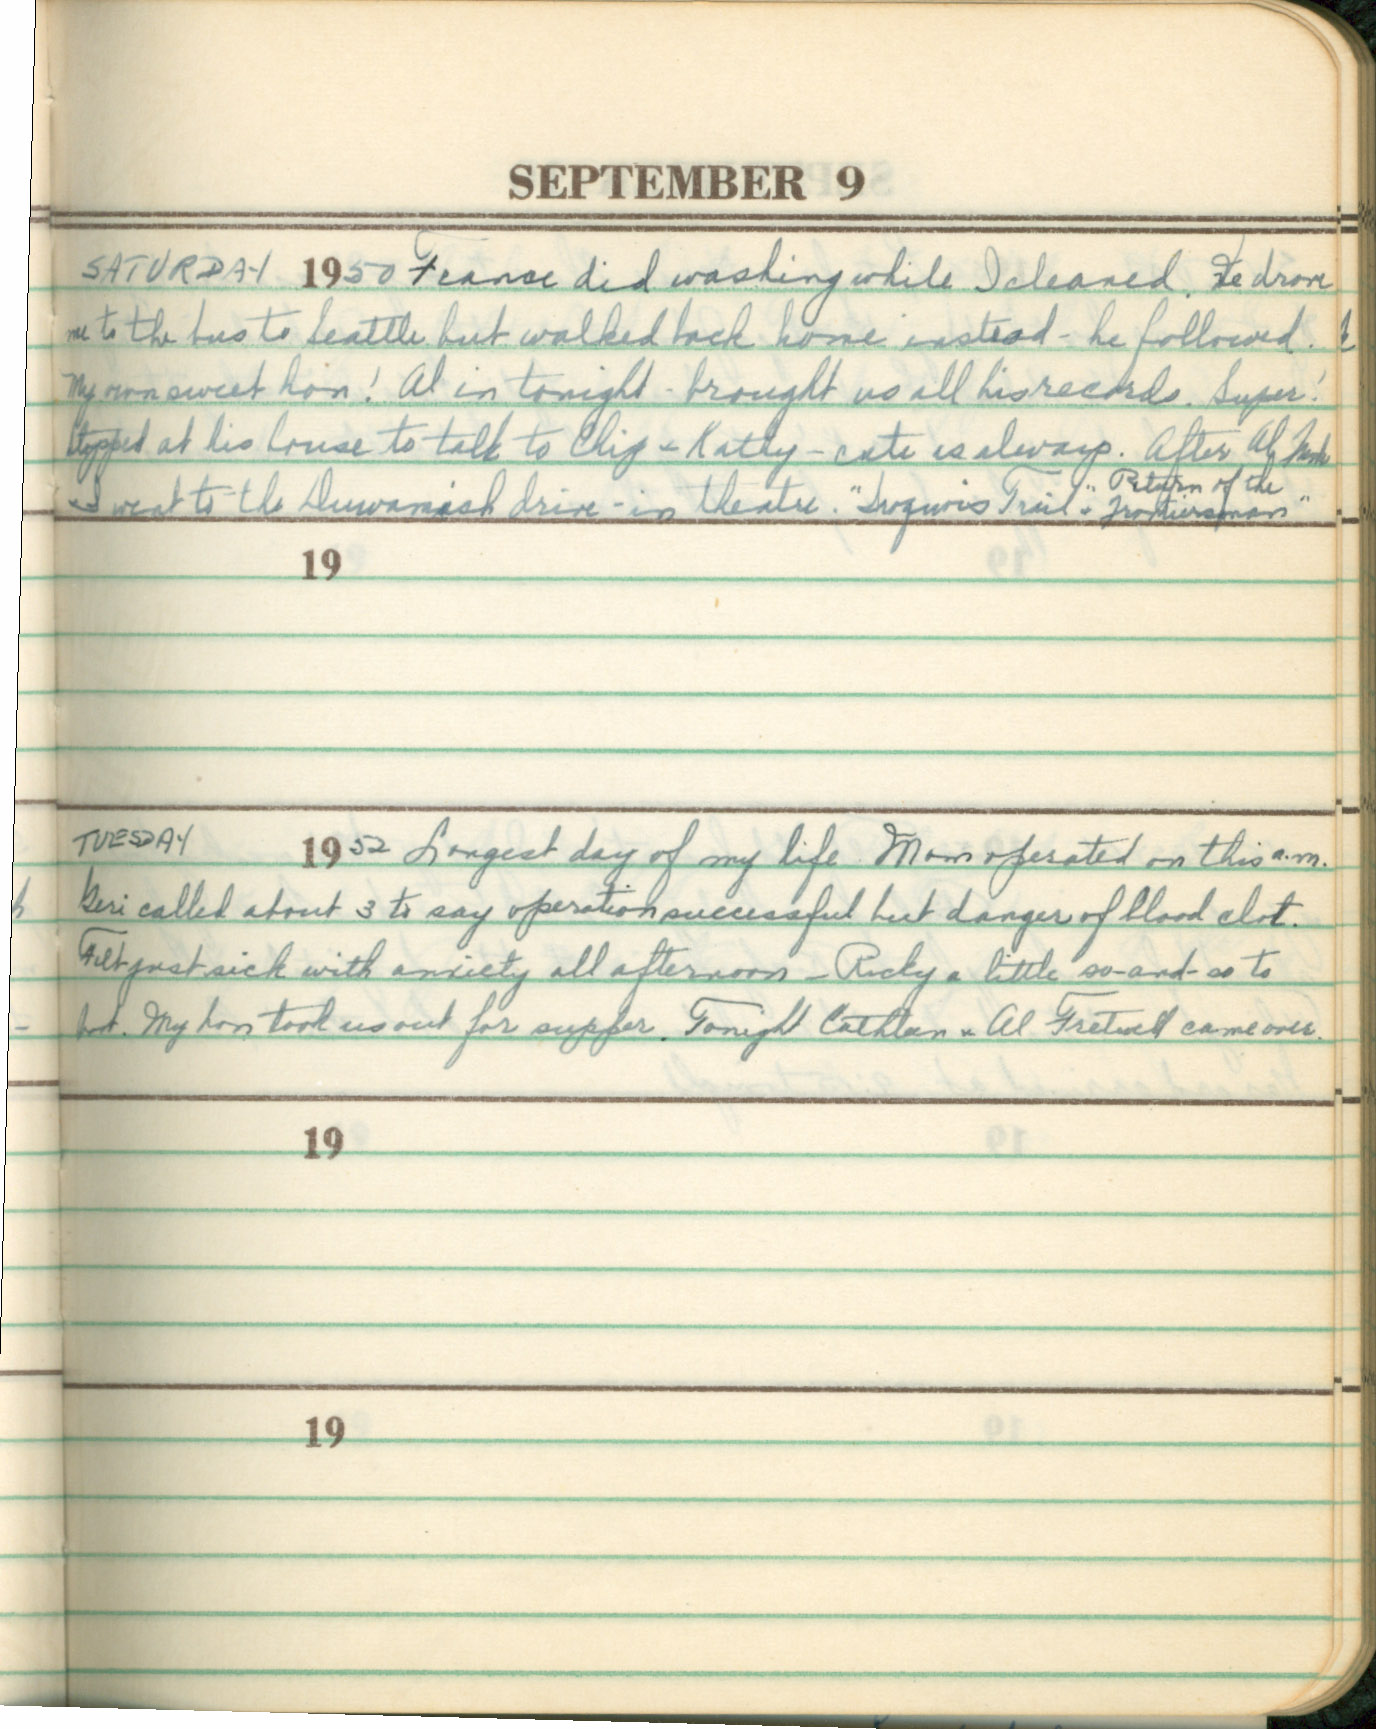 SEPTEMBER 9
SATURDAY 1950 France did washing while I cleaned. He drove
me to the bus to Seattle but walked back home instead - he followed.
My own sweet hon! Al in tonight - brought us all his records. Super!
Stopped at his house to talk to Chip & Kathy - cute as always. After Al,
& I went to the Duwamish drive-in theatre. "Iroquois Trail" & "Return of the
Frontiersman"
19
TUESDAY 1952 Longest day of my life. Mom operated on this a.m.
Geri called about 3 to say operation successful but danger of blood clot.
Felt just sick with anxiety all afternoon - Ricky a little so-and-so to
boot. My hon took us out for supper. Tonight Cathleen & Al Fretwell came over.
19
19